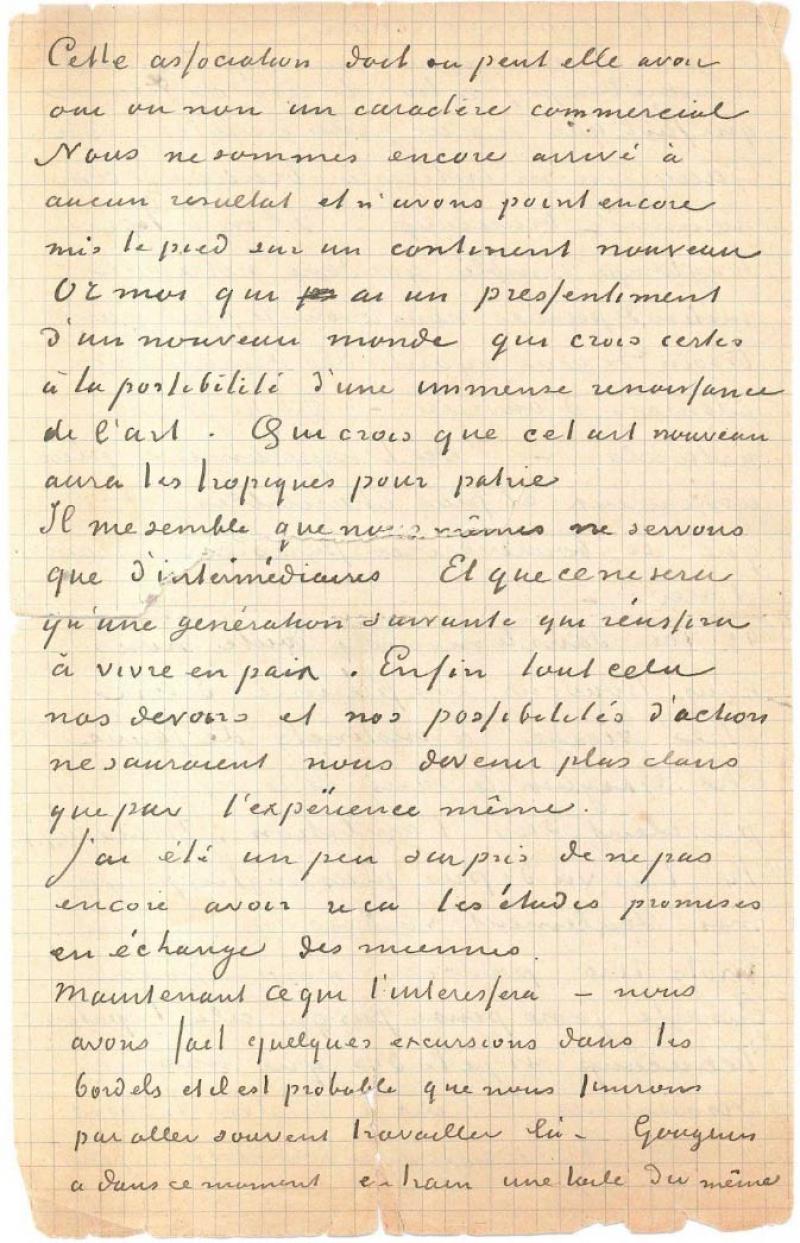 Cette association doit ou peut elle avoir
oui ou non un caractère commercial
Nous ne sommes encore arrivé à
aucun resultat et n'avons point encore
mis le pied sur un continent nouveau
Or moi qui ai un pressentiment
d'un nouveau monde qui crois certes
à la possibilité d'une immense renaissance
de l'art . Qui crois que cet art nouveau
aura les tropiques pour patrie
Il me semble que nous mêmes ne servons
que d'intermédiaires Et que ce ne sera
qu'une génération suivante qui réussira
à vivre en paix . Enfin tout cela
nos devoirs et nos possibilités d'action
ne sauraient nous devenir plus clairs
que par l'expérience même .
J'ai été un peu surpris de ne pas
encore avoir reca les études promises
en échange des miennes .
Maintenant ce qui t'interessera – nous
avons fait quelques excursions dans les
bordels et il est probable que nous finirons
par aller souvent travailler là – Gauguin
a dans ce moment en train une toile du même